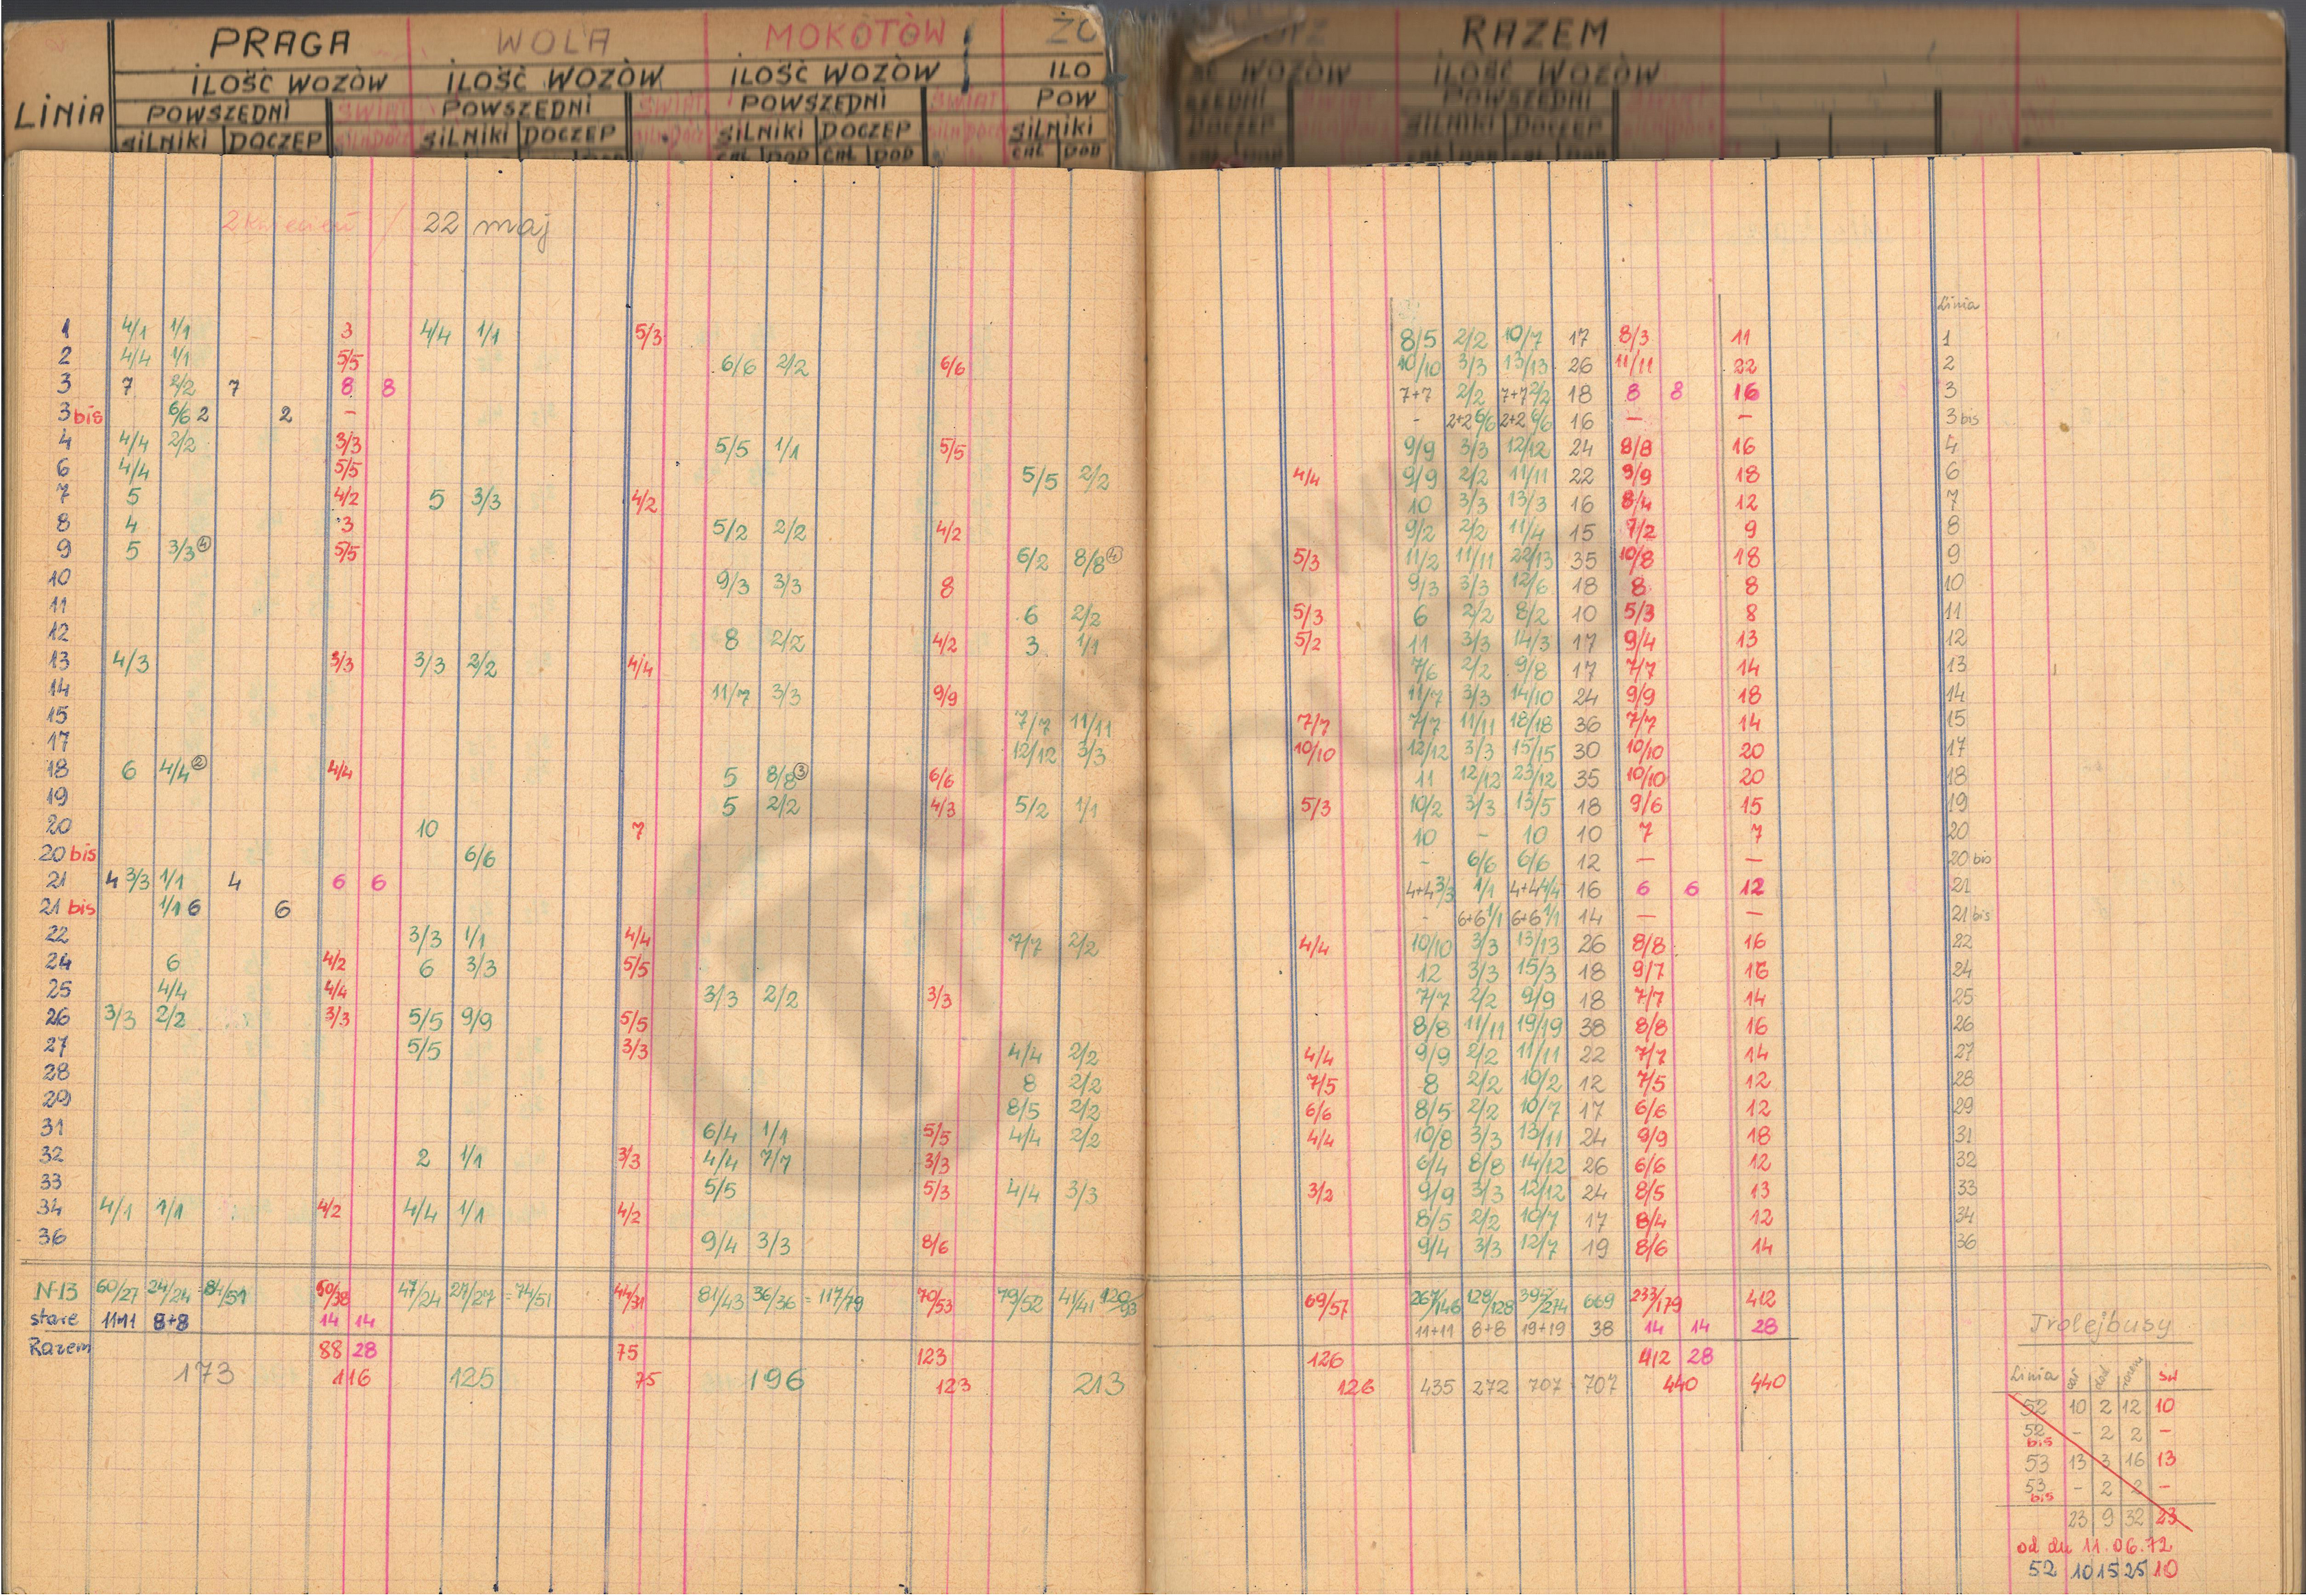 PRAGA WOLA MOKOTÓW ŻO RAZEM
ILOŚĆ WOZÓW ILOŚĆ WOZÓW ILOŚĆ WOZÓW ILO ŚĆ WOZÓW ILOŚĆ WOZÓW
LINIA POWSZEDNI ŚWIĄT POWSZEDNI ŚWIĄT POWSZEDNI ŚWIĄT POW SZEDNI ŚWIĄT POWSZEDNI ŚWIĄT
SILNIKI DOCZEP SILNIKI DOCZEP SILNIKI DOCZEP SILNIKI DOCZEP SILNIKI DOCZEP
2 kwiecień / 22 maj
Linia
1 4/1 1/1 3 4/4 1/1 5/3 8/5 2/2 10/7 17 8/3 11 1
2 4/4 1/1 5/5 6/6 2/2 6/6 10/10 3/3 13/13 26 11/11 22 2
3 7 2/2 7 8 8 7+7 2/2 7+7 2/2 18 8 8 16 3
3 bis 6/6 2 2 - - 2+2 6/6 2+2 6/6 16 - - 3 bis
4 4/4 2/2 3/3 5/5 1/1 5/5 9/9 3/3 12/12 24 8/8 16 4
6 4/4 5/5 5/5 2/2 4/4 9/9 2/2 11/11 22 9/9 18 6
7 5 4/2 5 3/3 4/2 10 3/3 13/3 16 8/4 12 7
8 4 3 5/2 2/2 4/2 9/2 2/2 11/4 15 7/2 9 8
9 5 3/3 ④ 5/5 6/2 8/8 ④ 5/3 11/2 11/11 22/13 35 10/8 18 9
10 9/3 3/3 8 9/3 3/3 12/6 18 8 8 10
11 6 2/2 5/3 6 2/2 8/2 10 5/3 8 11
12 8 2/2 4/2 3 1/1 5/2 11 3/3 14/3 17 9/4 13 12
13 4/3 3/3 3/3 2/2 4/4 7/6 2/2 9/8 17 7/7 14 13
14 11/7 3/3 9/9 11/7 3/3 14/10 24 9/9 18 14
15 7/7 11/11 7/7 7/7 11/11 18/18 36 7/7 14 15
17 12/12 3/3 10/10 12/12 3/3 15/15 30 10/10 20 17
18 6 4/4 ② 4/4 5 8/8 ③ 6/6 11 12/12 23/12 35 10/10 20 18
19 5 2/2 4/3 5/2 1/1 5/3 10/2 3/3 13/5 18 9/6 15 19
20 10 7 10 - 10 10 7 7 20
20 bis 6/6 - 6/6 6/6 12 - - 20 bis
21 4 3/3 1/1 4 6 6 4+4 3/3 1/1 4+4 4/4 16 6 6 12 21
21 bis 1/1 6 6 - 6+6 1/1 6+6 1/1 14 - - 21 bis
22 3/3 1/1 4/4 7/7 2/2 4/4 10/10 3/3 13/13 26 8/8 16 22
24 6 4/2 6 3/3 5/5 12 3/3 15/3 18 9/7 16 24
25 4/4 4/4 3/3 2/2 3/3 7/7 2/2 9/9 18 7/7 14 25
26 3/3 2/2 3/3 5/5 9/9 5/5 8/8 11/11 19/19 38 8/8 16 26
27 5/5 3/3 4/4 2/2 4/4 9/9 2/2 11/11 22 7/7 14 27
28 8 2/2 7/5 8 2/2 10/2 12 7/5 12 28
29 8/5 2/2 6/6 8/5 2/2 10/7 17 6/6 12 29
31 6/4 1/1 5/5 4/4 2/2 4/4 10/8 3/3 13/11 24 9/9 18 31
32 2 1/1 3/3 4/4 7/7 3/3 6/4 8/8 14/12 26 6/6 12 32
33 5/5 5/3 4/4 3/3 3/2 9/9 3/3 12/12 24 8/5 13 33
34 4/1 1/1 4/2 4/4 1/1 4/2 8/5 2/2 10/7 17 8/4 12 34
36 9/4 3/3 8/6 9/4 3/3 12/7 19 8/6 14 36
N-13 60/27 24/24 = 84/51 50/38 47/24 27/27 = 74/51 44/31 81/43 36/36 = 117/79 70/53 79/52 41/41 120/93 69/57 267/146 128/128 395/274 669 233/179 412
stare 11+11 8+8 14 14 11+11 8+8 19+19 38 14 14 28
Razem 88 28 75 123 126 412 28
173 116 125 75 196 123 213 126 435 272 707 707 440 440
Trolejbusy
Linia razem św
52 10 2 12 10
52 bis - 2 2 -
53 13 3 16 13
53 bis - 2 2 -
23 9 32 23
od dn 11.06.72
52 10 15 25 10